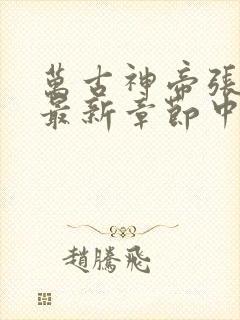 萬古神帝張
最新章節中
趙騰飛